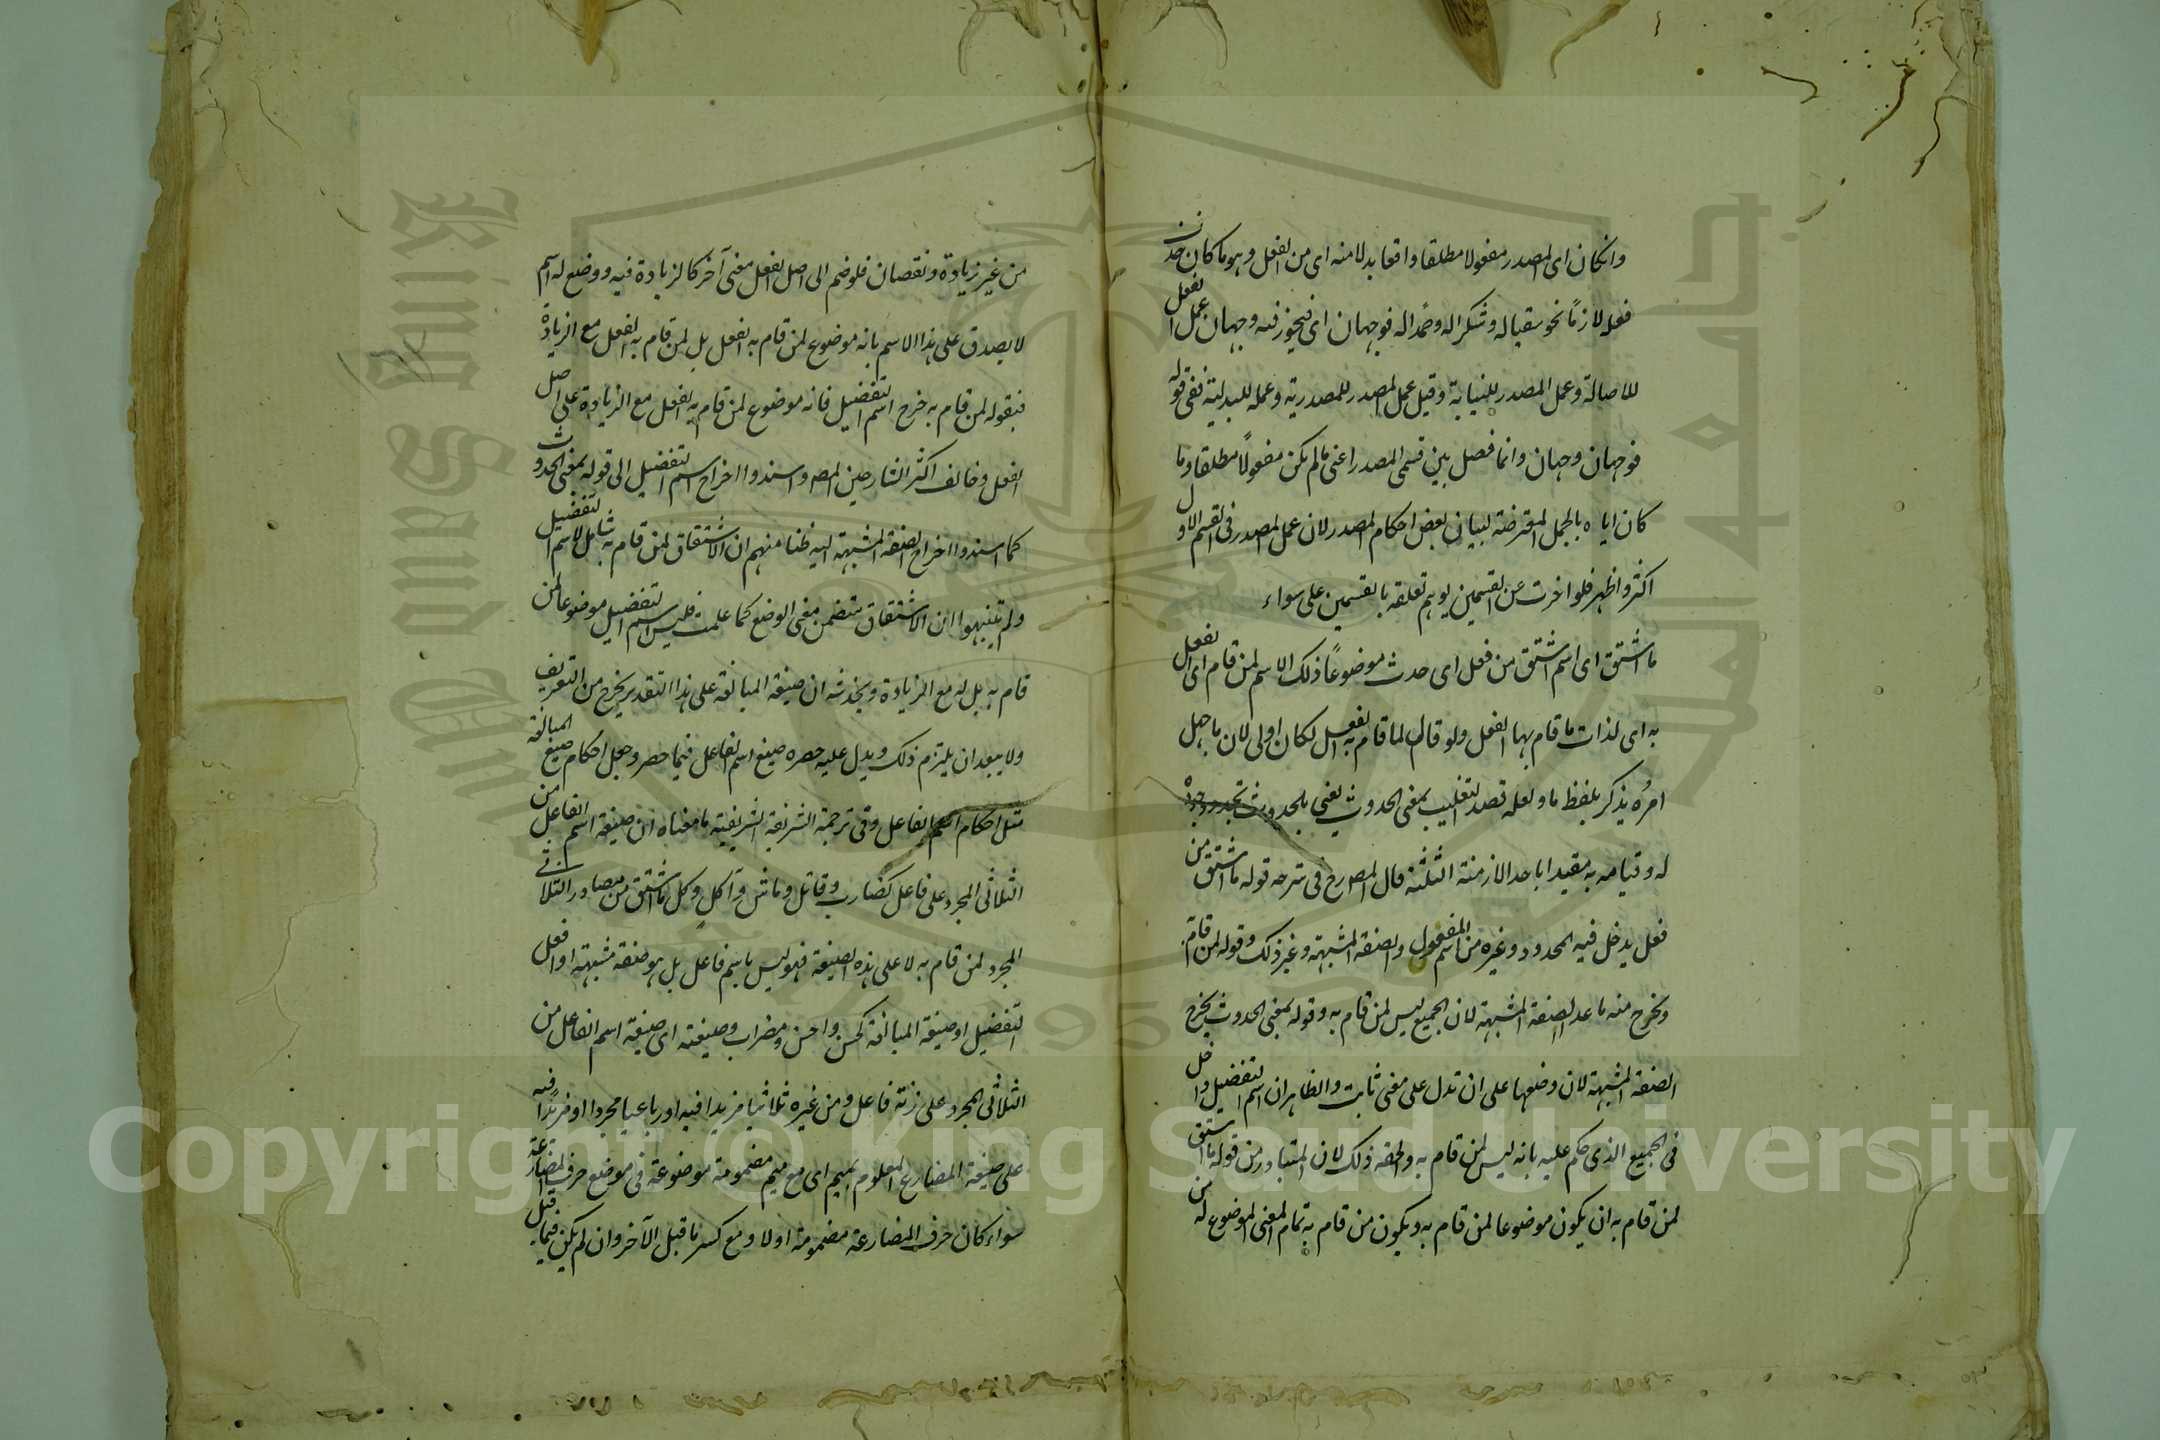 وانكان اى المصدر مفعولا مطلقا واقعا بدلا منه اى من الفعل وهو ما كان حذف
فعله لازمًا نحو سقيا له وشكرا له وحمدا له فوجهان اى فيجوز فيه وجهان عمل الفعل
للاصالة وعمل المصدر للنيابة وقيل عمل المصدر للمصدرية وعمله للبدلية ففى قوله
فوجهان وجهان وانما فصل بين قسمى المصدر اعنى ما لم يكن مفعولاً مطلقا وما
كان اياه بالجمل المعترضة لبيان بعض احكام المصدر لان عمل المصدر فى القسم الاول
اكثر واظهر فلو اخرت عن القسمين يوهم تعلقه بالقسمين على سواء
ما اشتق اى اسم اشتق من فعل اى حدث موضوعًا ذلك الاسم لمن قام اى الفعل
به اى لذات ما قام بها الفعل ولو قال لما قام به الفعل لكان اولى لان ما جهل
امره يذكر بلفظ ما ولعله قصد التغليب بمعنى الحدوث يعنى بالحدوث تجدد وجوده
له وقيامه به مقيدا باحد الازمنة الثلثة قال المصـ رح فى شرحه قوله ما اشتق من
فعل يدخل فيه المحدود وغيره من اسم المفعول والصفة المشبهة وغير ذلك وقوله لمن قام
يخرج منه ما عدا الصفة المشبهة لان الجميع ليس لمن قام به وقوله بمعنى الحدوث يخرج
الصفة المشبهة لان وضعها على ان تدل على معنى ثابت والظاهر ان اسم التفضيل داخل
فى الجميع الذى حكم عليه بانه ليس لمن قام به والحق ذلك لان المتبادر من قوله ما اشتق
لمن قام به ان يكون موضوعا لمن قام به ويكون من قام به تمام المعنى الموضوع له من
من غير زيادة ونقصان فلو ضم الى اصل الفعل معنى آخر كالزيادة فيه ووضع له اسم
لا يصدق على هذا الاسم بانه موضوع لمن قام به الفعل بل لمن قام به الفعل مع الزيادة
فبقوله لمن قام به خرج اسم التفضيل فانه موضوع لمن قام به الفعل مع الزيادة على اصل
الفعل وخالف اكثر الشارحين المصـ واسندوا اخراج اسم التفضيل الى قوله بمعنى الحدوث
كما اسندوا اخراج الصفة المشبهة اليه ظنا منهم ان الاشتقاق لمن قام به شامل لاسم التفضيل
ولم يتنبهوا ان الاشتقاق يتضمن معنى الوضع كما علمت فليس اسم التفضيل موضوعا لمن
قام به بل له مع الزيادة ويخدشه ان صيغة المبالغة على هذا التقدير يخرج من التعريف
ولا يبعد ان يلتزم ذلك ويدل عليه حصره صيغ اسم الفاعل فيما حصر وجعل احكام صيغ المبالغة
مثل احكام اسم الفاعل وفى ترجمة الشريفة الشريفية ما معناه ان صيغة اسم الفاعل من
الثلاثى المجرد على فاعل كضارب وقاتل وماش وآكل وكل ما اشتق من مصادر الثلاثى
المجرد لمن قام به لا على هذه الصيغة فهو ليس باسم فاعل بل هو صفة مشبهة او افعل
التفضيل او صيغة المبالغة كحسن واحسن ومضراب وصيغته اى صيغة اسم الفاعل من
الثلاثى المجرد على زنة فاعل ومن غيره ثلاثيا مزيدا فيه او رباعيا مجردا او مزيدًا فيه
على صيغة المضارع المعلوم بميم اى مع ميم مضمومة موضوعة فى موضع حرف المضارعة
سواء كان حرف المضارعة مضمومة اولا ومع كسر ما قبل الآخر وان لم يكن فيما قبل
جامعة الملك سعود
King Saud University
1957
Copyright © King Saud University